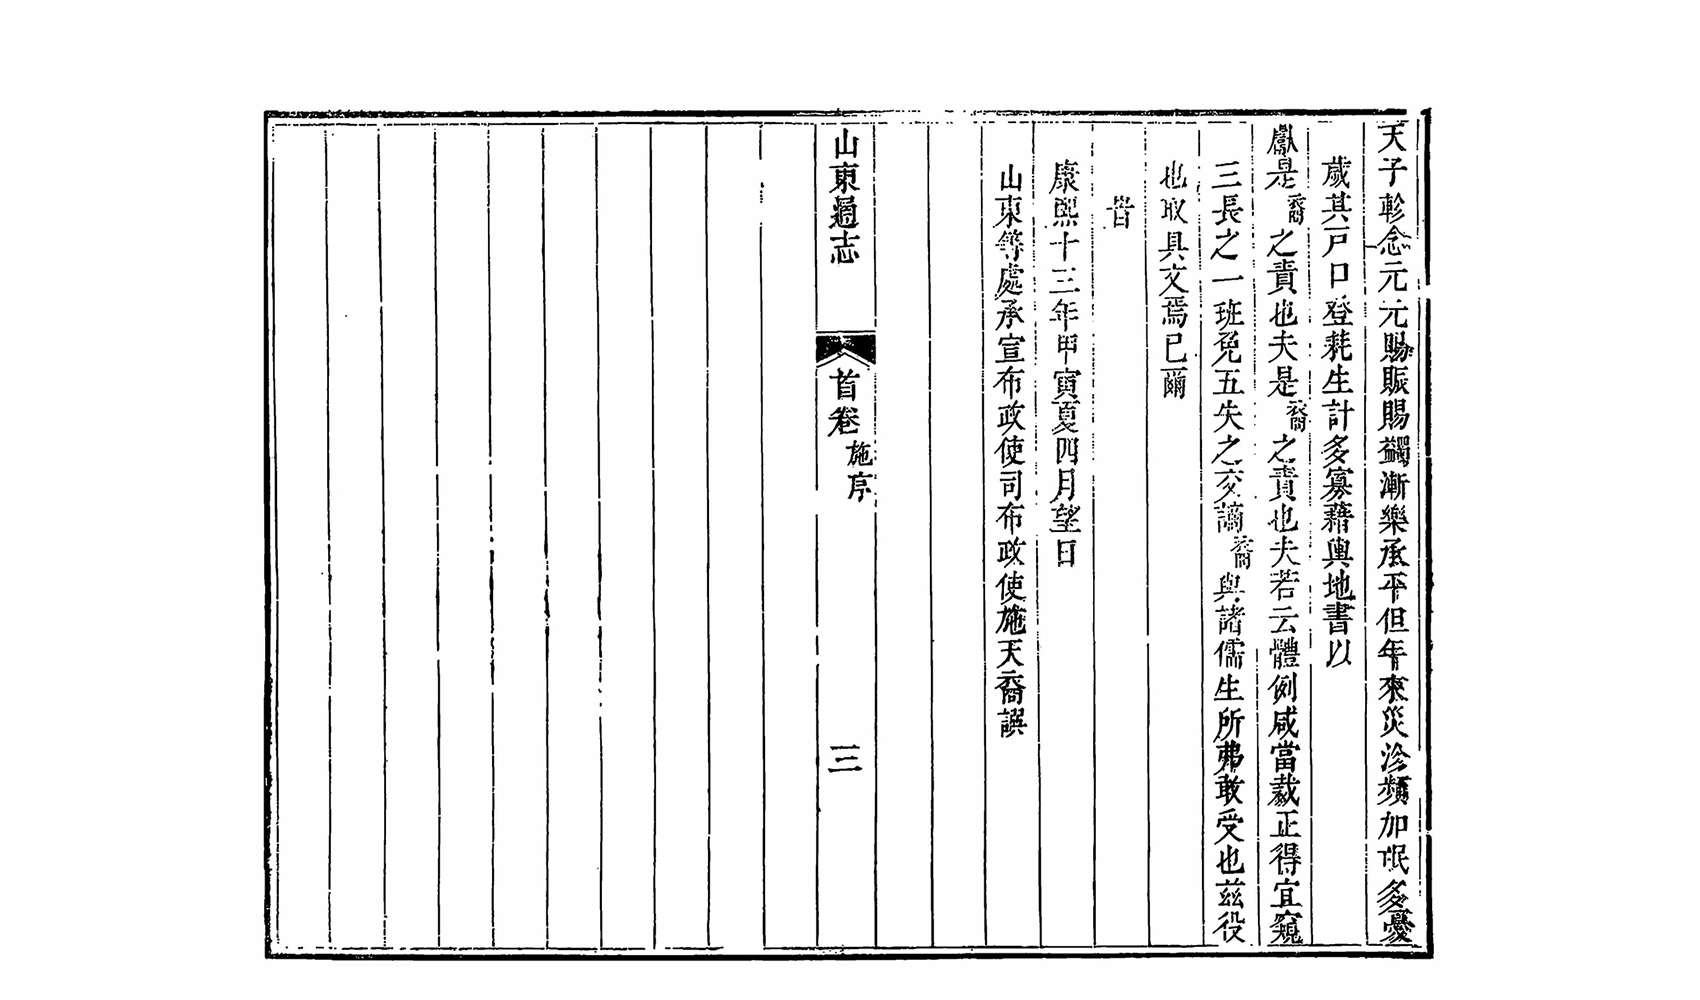 天子軫念元元賜賑賜蠲漸樂承平但年來災沴頻加氓多憂
歲其戸口登耗生計多寡藉輿地書以
獻是裔之責也夫是裔之責也夫若云體例咸當裁正得宜窺
三長之一班免五失之交謫裔與諸儒生所弗敢受也茲役
也取具文焉已爾
旹
康熙十三年甲寅夏四月望日
山東等處承宣布政使司布政使施天裔譔
山東通志
首卷
施序
三